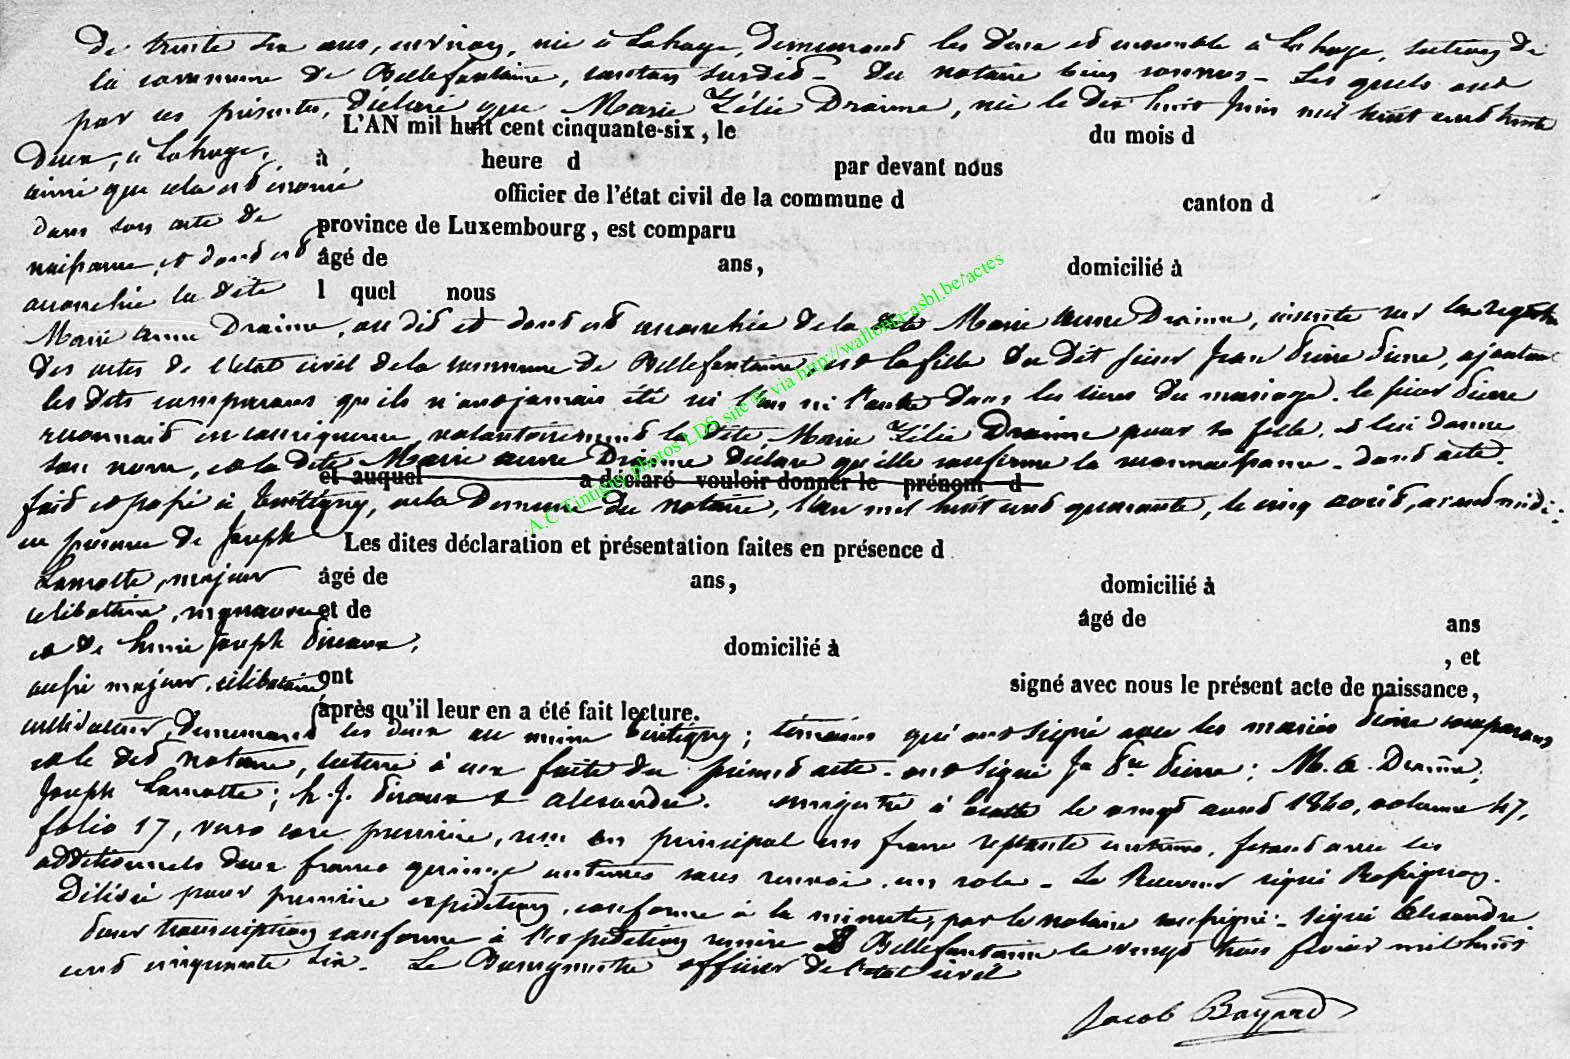 De trente six ans, née à Lahage, demeurant les deux et ensemble à Lahage, section de
la commune de Bellefontaine, canton susdit - du notaire bien connus - Les quels ont
par ces présentes, déclaré que Marie Zélie Draime, née le dix huit juin mil huit cent trente
L'AN mil huit cent cinquante-six, le du mois d
deux, à Lahage,
à heure d par devant nous
ainsi que cela est énoncé
officier de l'état civil de la commune d canton d
dans son acte de
province de Luxembourg, est comparu
naissance, et dont est
âgé de ans, domicilié à
accouchée la dite
l quel nous
Marie Anne Draime, au dit et dont est accouchée de la dite Marie Anne Draime, inscrite sur les registres
des actes de l'état civil de la commune de Bellefontaine, est la fille du dit sieur Jean Pierre, ajoutant
les dits comparans qu'ils n'ont jamais été ni l'un ni l'autre dans les liens du mariage. le sieur Pierre
reconnait en conséquence, volontairement la dite Marie Zélie Draime pour sa fille, et lui donne
son nom, et la dite Marie Anne Draime déclare qu'elle confirme la reconnaissance - dont acte.
et auquel a déclaré vouloir donner le prénom d
fait et passé à Tintigny, en la demeure du notaire, l'an mil huit cent quarante, le cinq avril, avant midi:
en présence de Joseph
Les dites déclaration et présentation faites en présence d
Lamotte, majeur
âgé de ans, domicilié à
célibataire,
et de âgé de ans
et de Joseph
domicilié à , et
aussi majeur, célibataire
ont signé avec nous le présent acte de naissance,
après qu'il leur en a été fait lecture.
cultivateur, demeurant les deux au même Tintigny; témoins qui ont signé avec les Pierre comparans
et le dit notaire, lecture à eux faite du présent acte - ont signé Pierre; M. A. Draime;
Joseph Lamotte; h. J. & Alexandre. enregistré à le vingt avril 1840, volume 47,
folio 17, verso case première, reçu en principal un franc septante centimes, faisant avec les
additionnels deux francs quinze centimes sans renvoi. un role - Le Receveur signé
Délivré pour première expédition, conforme à la minute, par le notaire soussigné: - signé Alexandre
Pour transcription conforme à l'expédition remise Bellefontaine le vingt trois février mil huit
cent cinquante six - Le Bourgmestre officier de l'état civil
Jacob Bayard
A.C Tintigny photos LDS, site © via http://wallonia-asbl.be/actes